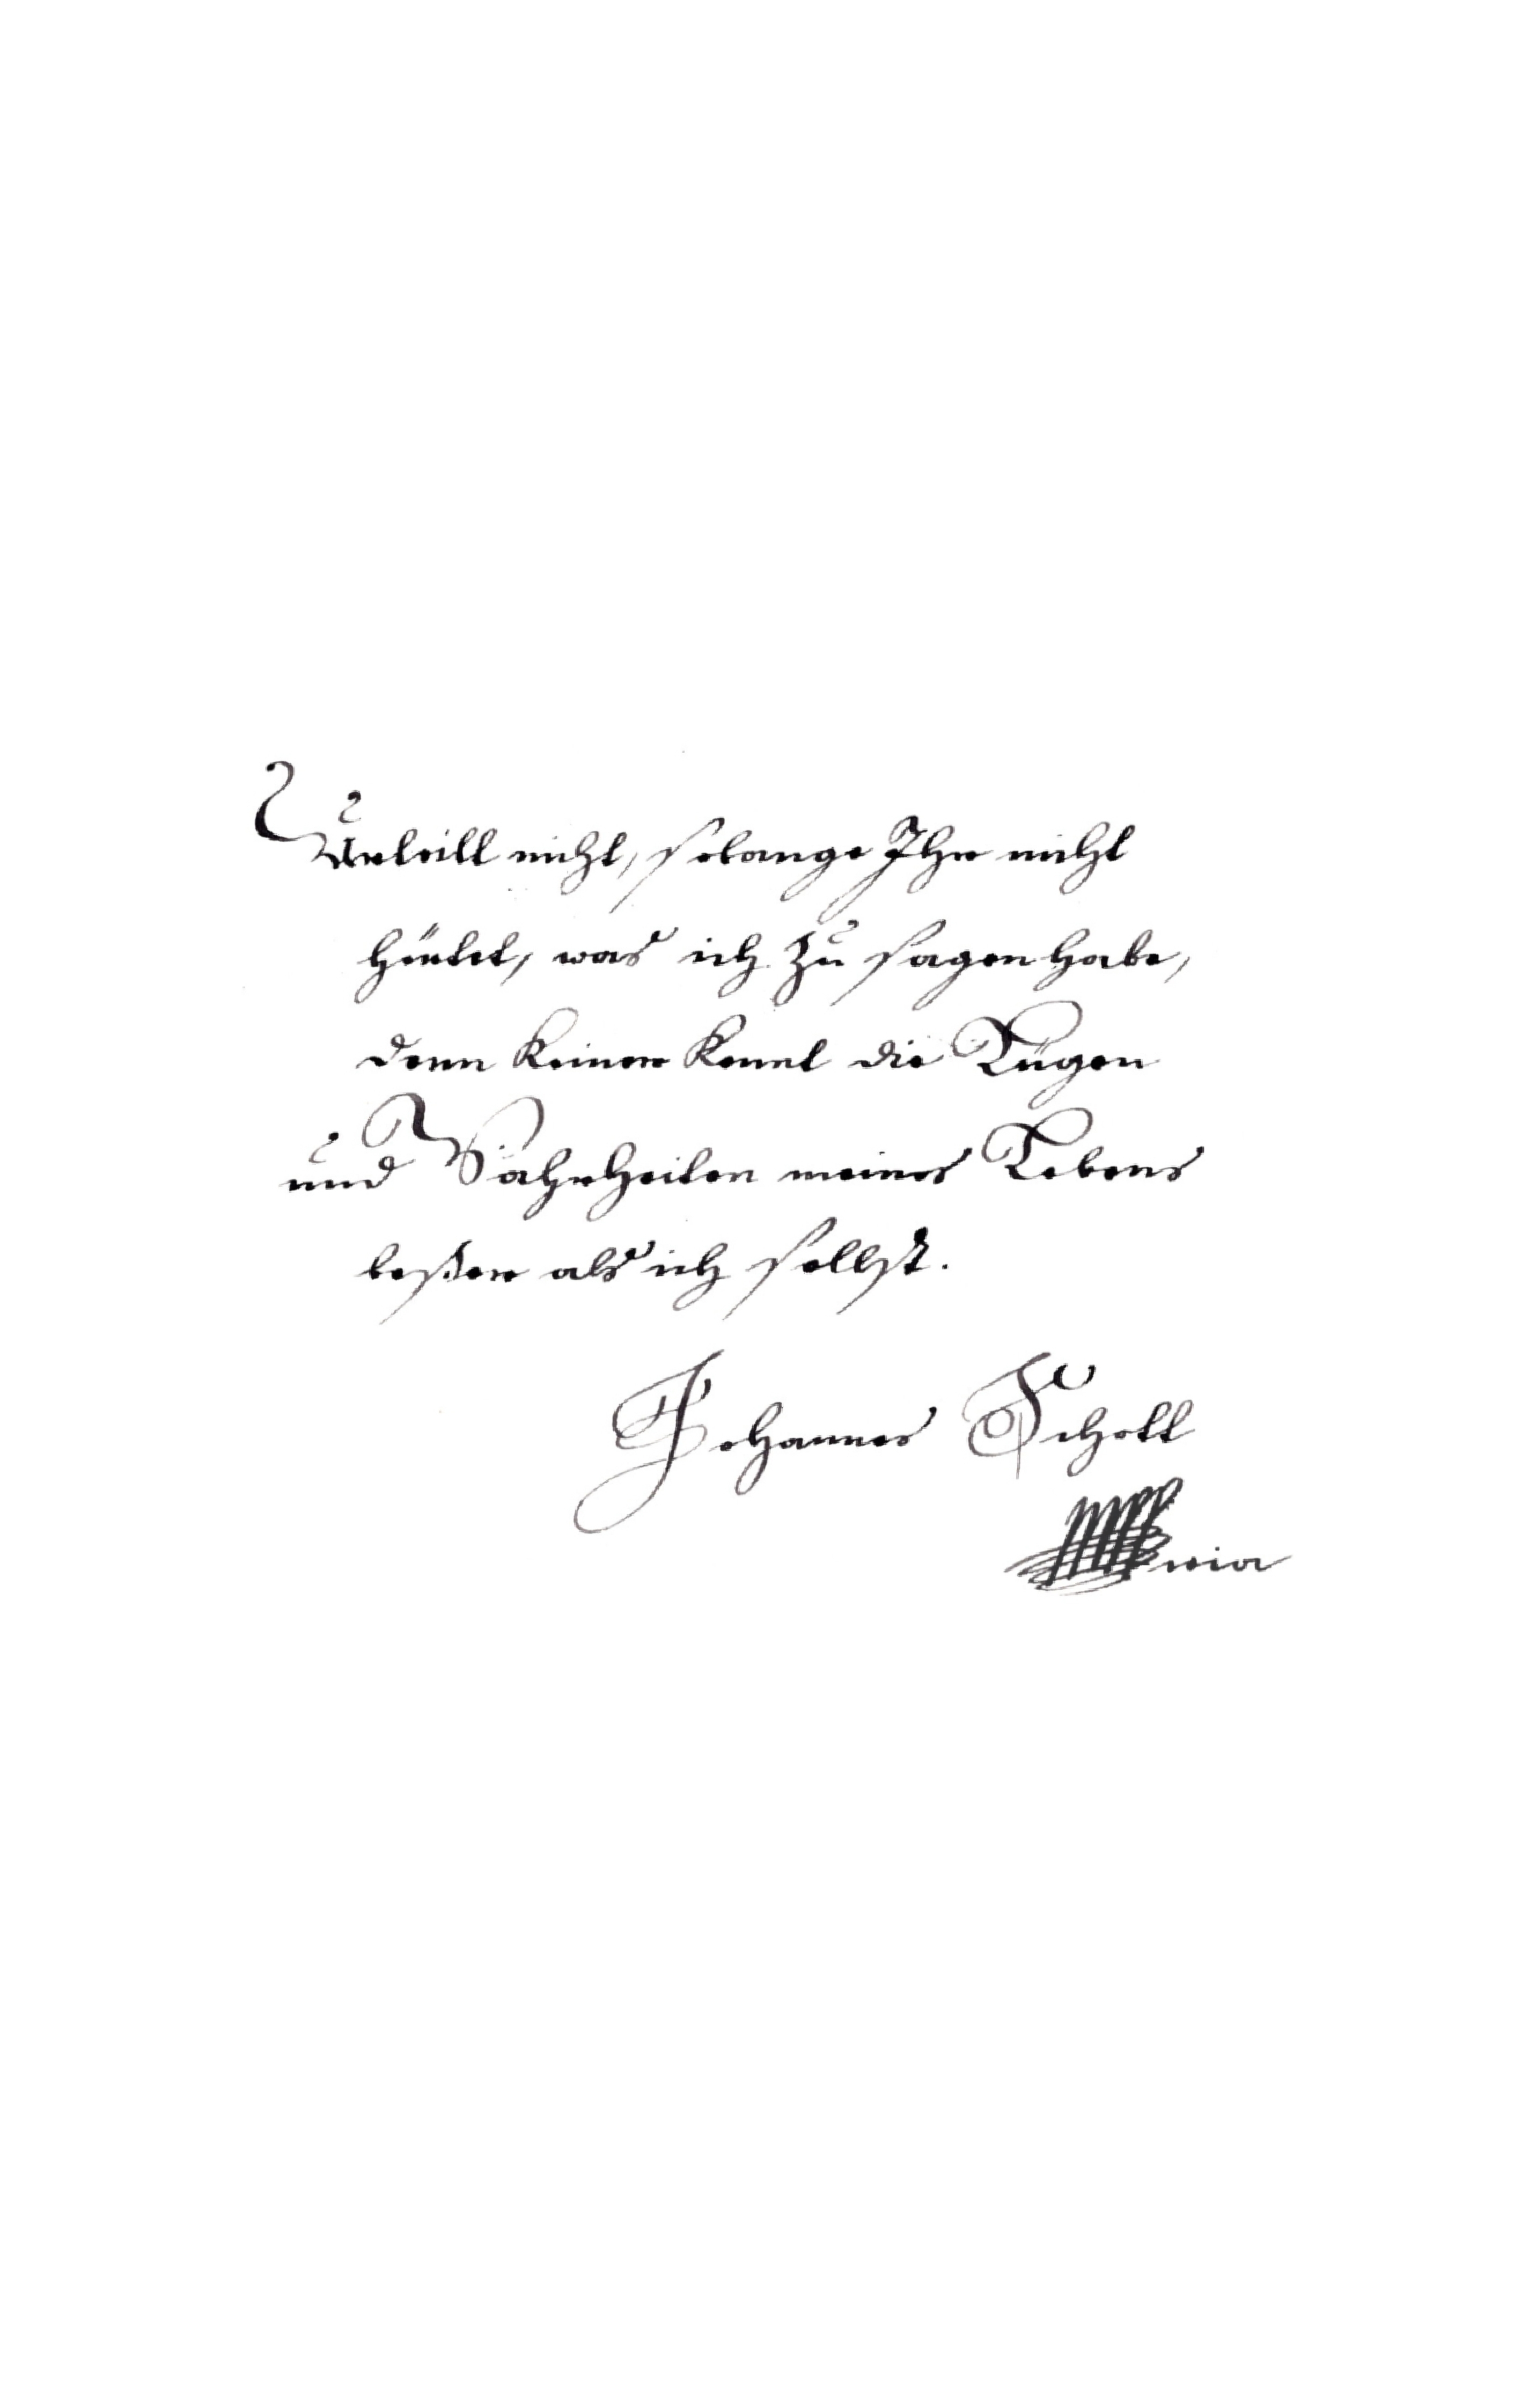 Urteilt nicht, solange Ihr nicht
hörtet, was ich zu sagen habe,
denn keiner kennt die Lügen
und Wahrheiten meines Lebens
beßer als ich selbst.
Johannes Schott